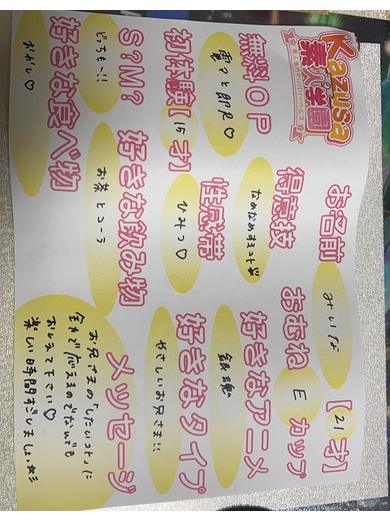 Kazusa
素人学園
お名前
みいな
【21才】
おむね
E
カップ
得意技
なめなめすること
好きなアニメ
銀魂
無料OP
性感帯
ひみつ♡
好きなタイプ
やさしいお兄さま!!
初体験
才】
好きな飲み物
お茶とコーラ
S?M?
どっちも〜!!
好きな食べ物
おかし♡
メッセージ
お兄さまの「したいコト」に
全力で応えるのでなんでも
おしえて下さい♡
楽しい時間すごしましょ